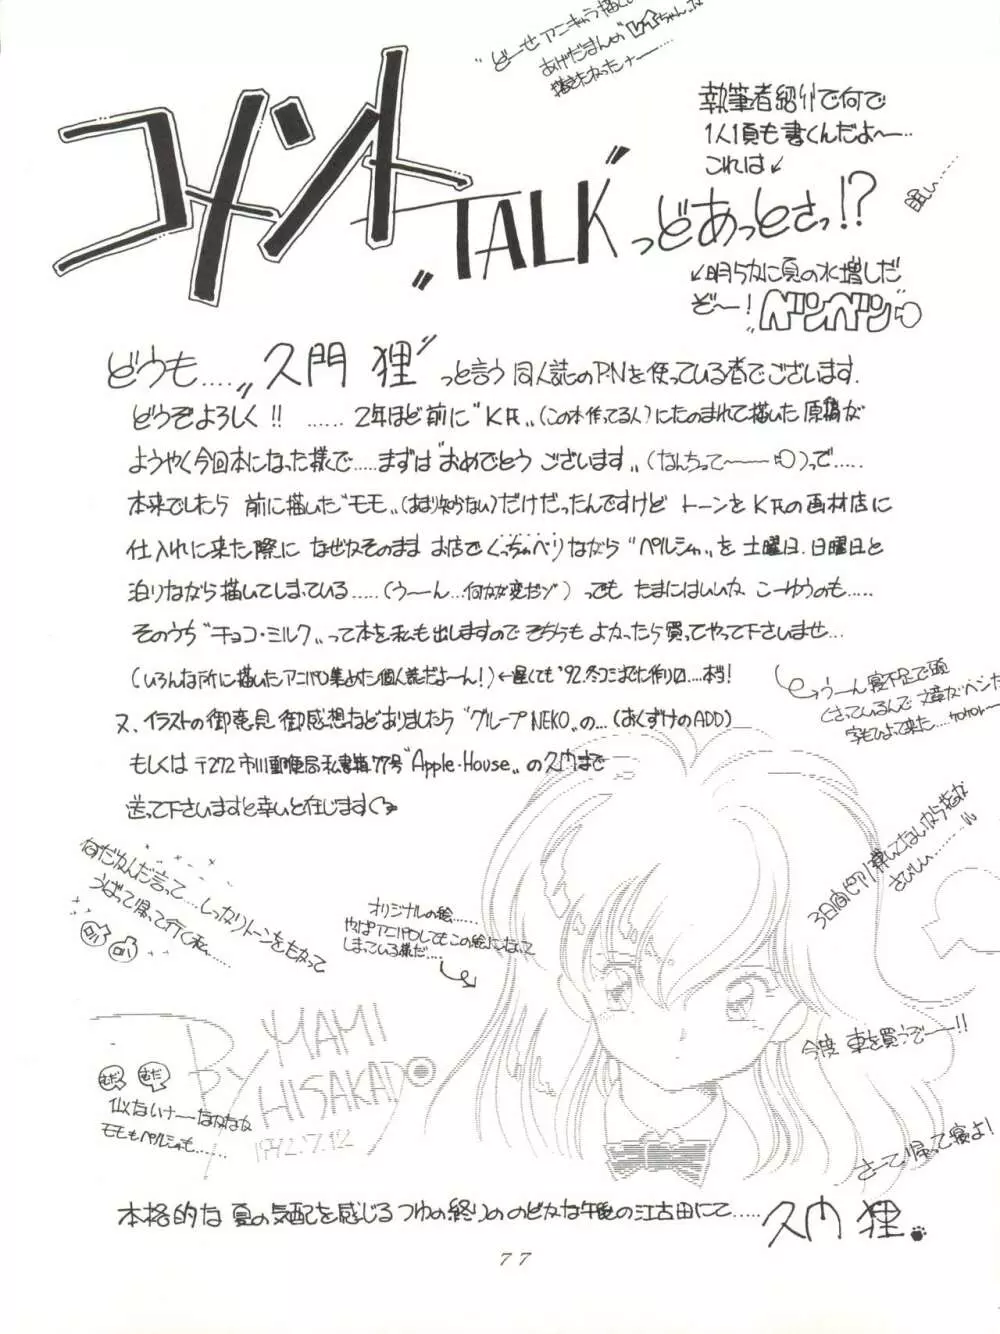 "どーせアニキャラ描く
あげだまんの
コメント
"TALK"
っどあっとさっ!?
執筆者紹介で何で
1人1頁も書くんだよ〜…
これは↙
眠い……
↙明らかに夏の水増しだ
ぞ〜!
どうも…."久門 狸"っと言う 同人誌のP.Nを使っている者でございます.
どうぞよろしく!! …… 2年ほど前に"K氏"(この本作ってる人)にたのまれて描いた原稿が
ようやく今回本になった様で…..まずは"おめでとう ございます"(なんちって〜〜)って…..
本来でしたら 前に描いた"モモ"(あまり知らない)だけだったんですけど トーンを K氏の画材店に
仕入れに来た際に なぜかそのまま お店でくっちゃべりながら "ペルシャ"を 土曜日.日曜日と
泊りながら描いてしまっている…..(う〜ん…何かが変だゾ) っでも たまにはいいな こーゆうのも…..
そのうち"チョコ・ミルク"って本を私も出しますので そちらも よかったら買ってやって下さいませ…
(いろんな所に描いたアニパロ集めた個人誌だよ〜ん!)←遅くても'92.冬コミまでに作りロ….本当!
又、イラストの御意見 御感想などありましたら "グループNEKO"の…(おくずけのADD)
もしくは 〒272 市川郵便局私書箱77号"Apple・House"の久門まで
送って下さいますと幸いと在じます
う〜ん寝不足で頭
くさっているんで 文章がヘンだ
字もひよって来た….
何だかんだ言って…しっかりトーンをもらって
うばって帰って行く私……
オリジナルの絵……
やっぱアニパロしてもこの絵になって
しまっている様だ….
3日間ピアノ弾いてないから指が
さびしい………
今度 車を買うぞ〜!!
さーて 帰って寝よ!
BY MAMI
HISAKADO
1992.7.12
むだ むだ
似ないナーなかなか
モモもペルシャも……
本格的な 夏の気配を感じる つゆの終りの のどかな午後の江古田にて…..
久門 狸
77